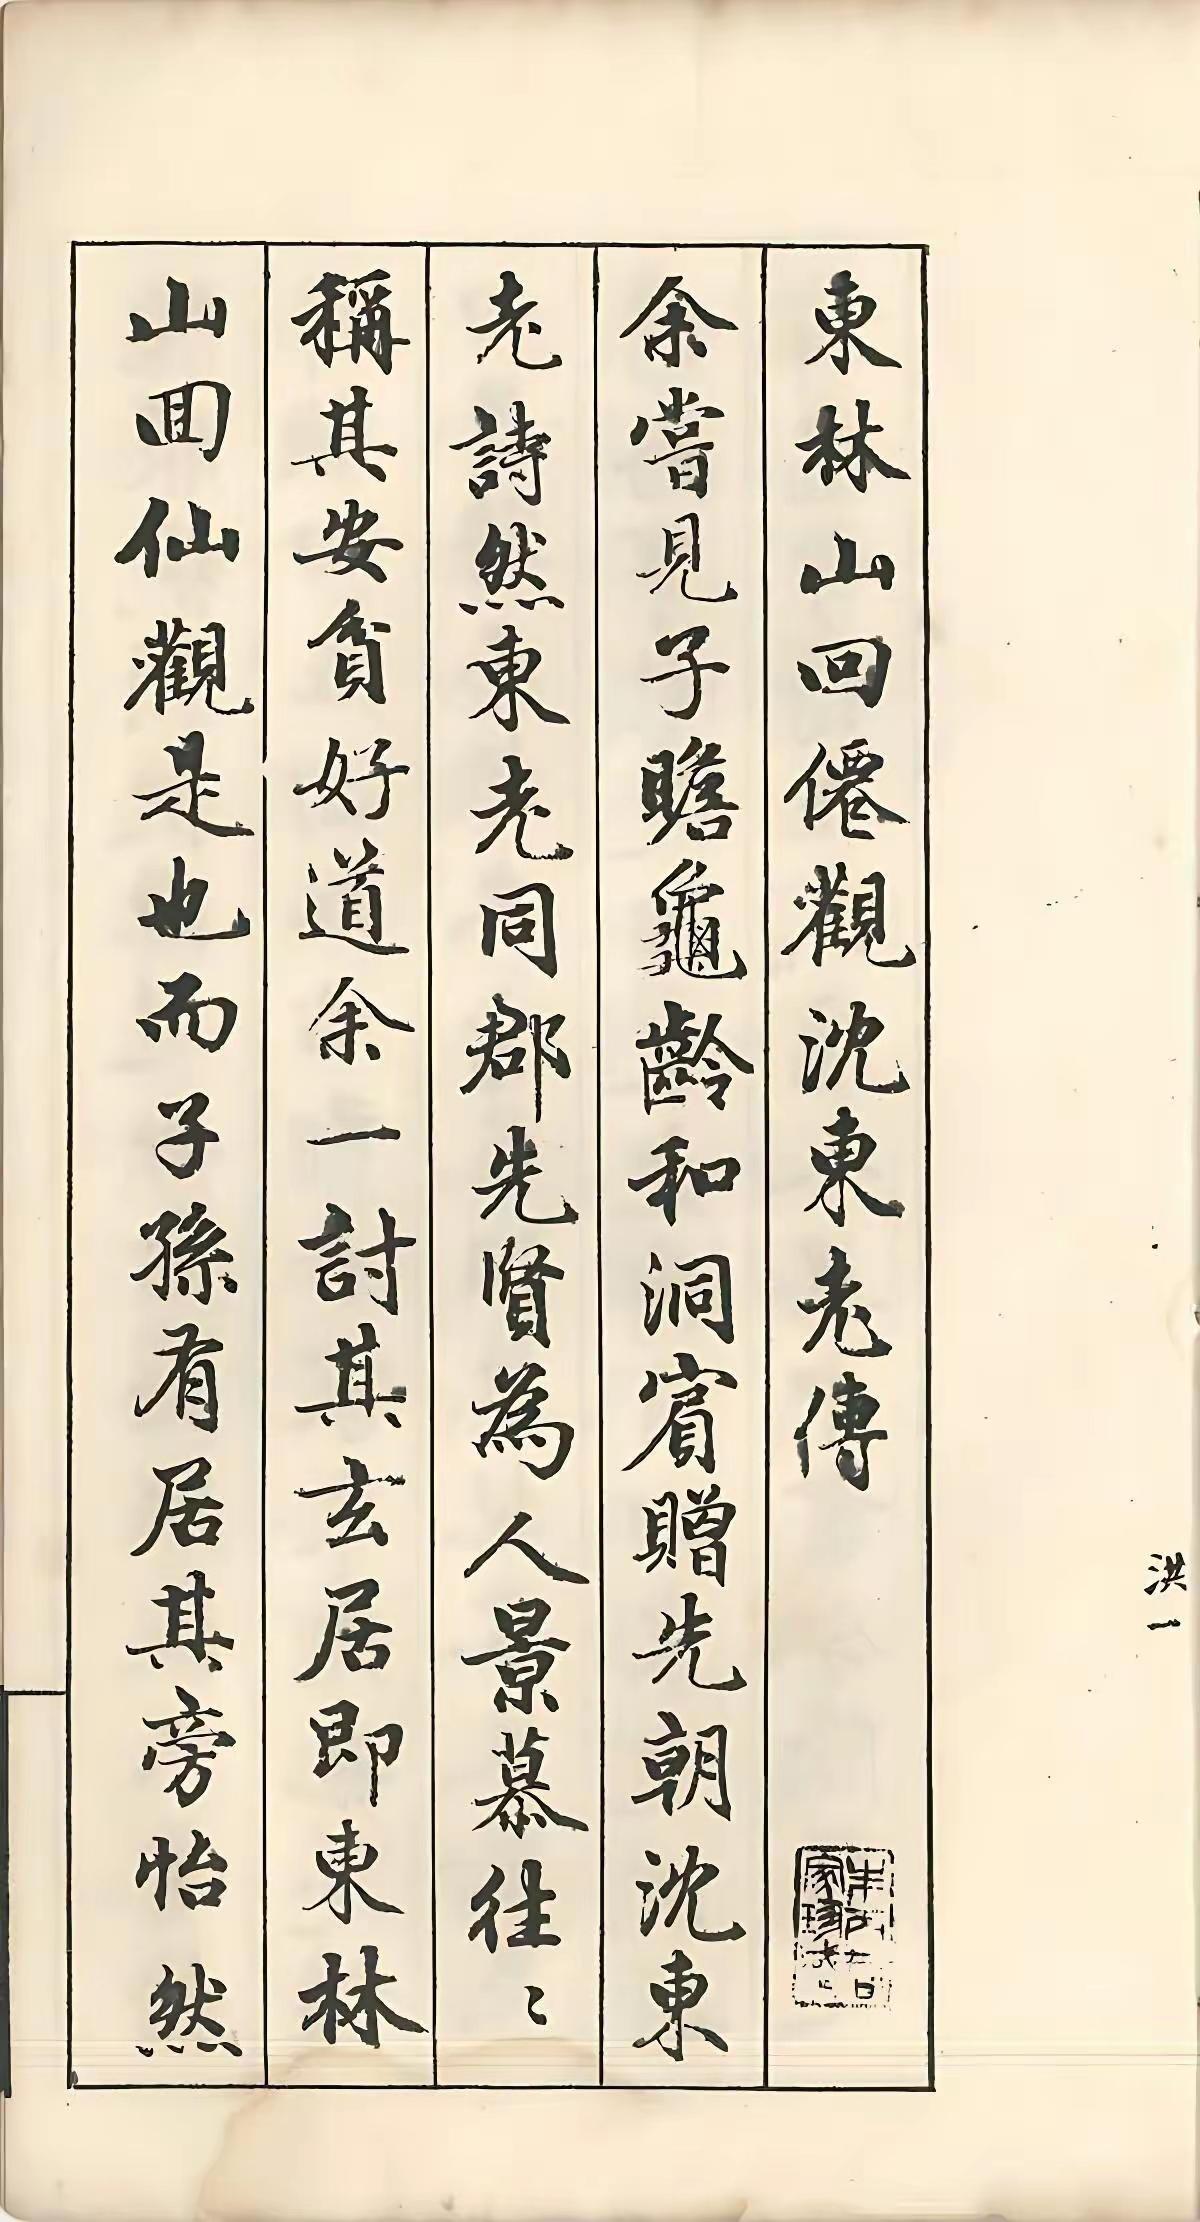 東林山回僊觀沈東老傳
余嘗見子瞻龜齡和洞賓贈先朝沈東
老詩然東老同郡先賢為人景慕往〻
稱其安貧好道余一討其玄居即東林
山回仙觀是也而子孫有居其旁怡然
洪一